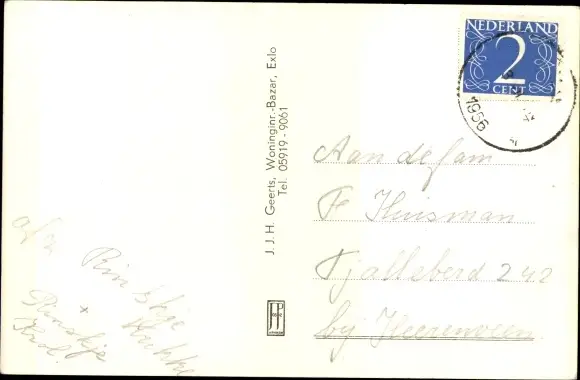 NEDERLAND
2
CENT
1956
J.J.H. Geerts, Woninginr.-Bazar, Exlo
Tel. 05919 - 9061
Aan de fam
F Huisman
Tjalleberd 242
bij Heerenveen
afz
Rinskje
x
Rinskje